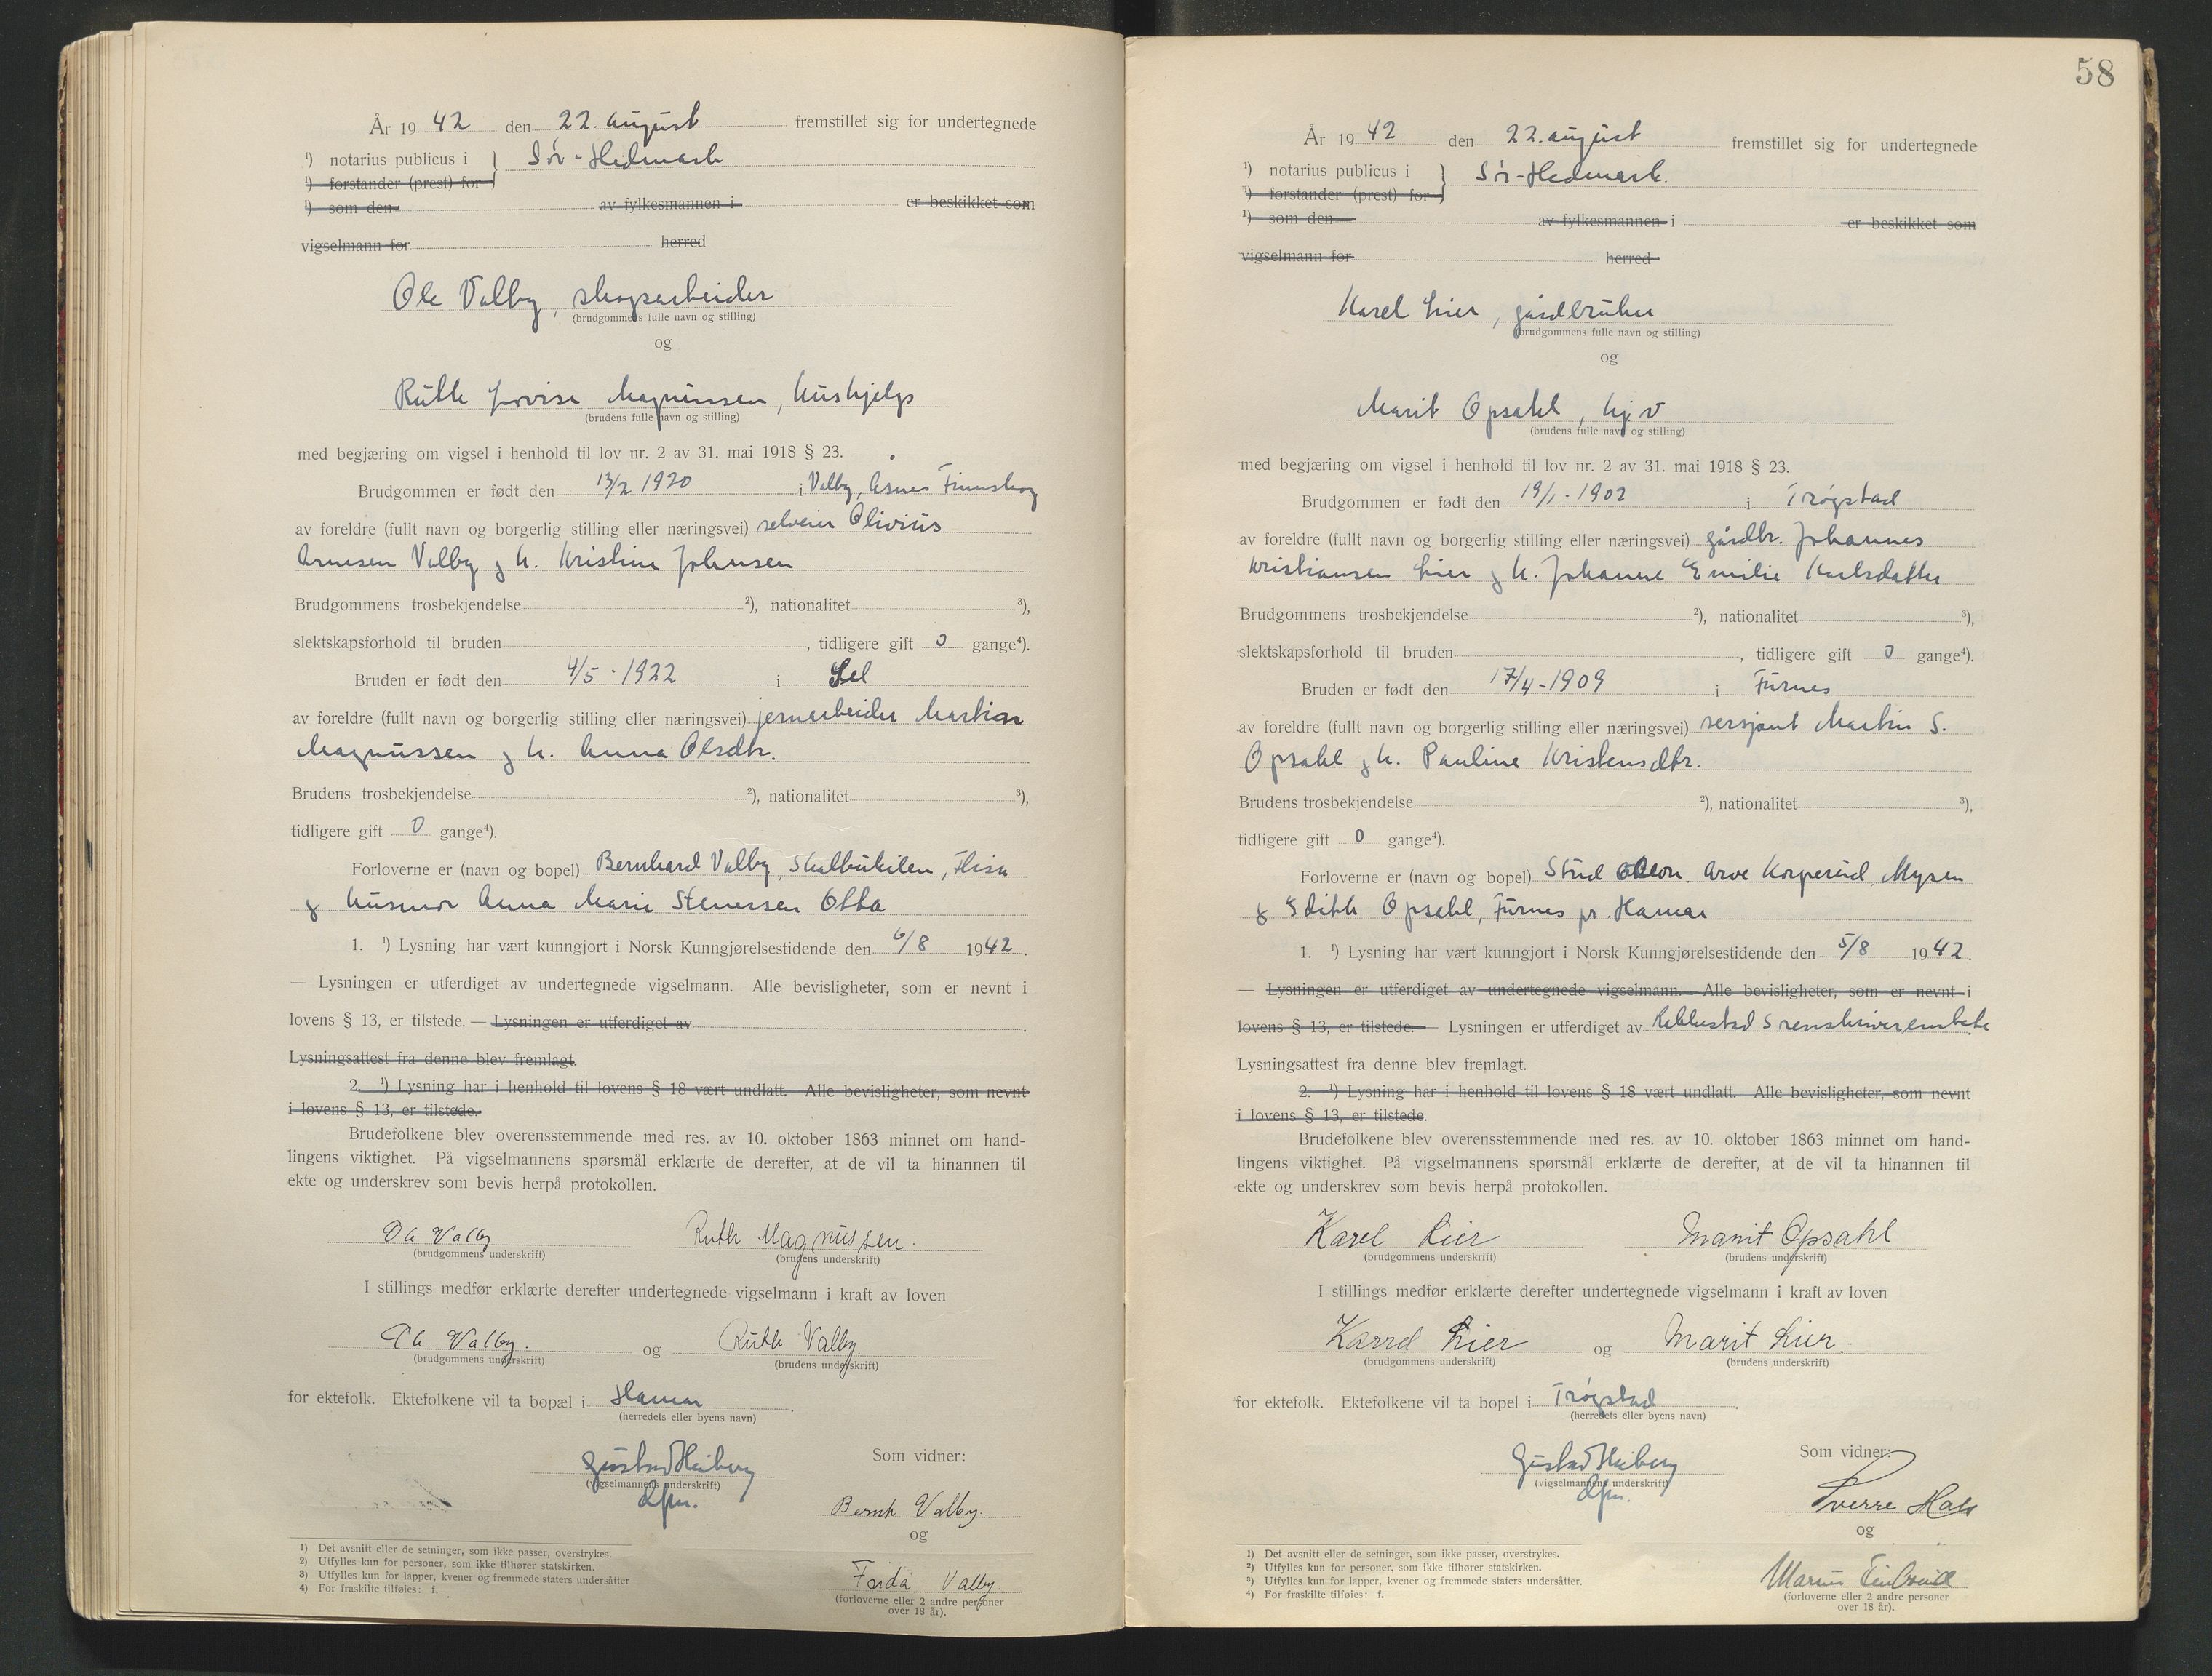 År 1942 den 22. august fremstillet sig for undertegnede
¹) notarius publicus i } Sør-Hedmark
¹) forstander (prest) for
¹) som den av fylkesmannen i er beskikket som
vigselmann for herred
Ole Valby, skogsarbeider
(brudgommens fulle navn og stilling)
og
Ruth Jovise Magnussen, hushjelp
(brudens fulle navn og stilling)
med begjæring om vigsel i henhold til lov nr. 2 av 31. mai 1918 § 23.
Brudgommen er født den 13/2 1920 i Valby, Åsnes Finnskog
av foreldre (fullt navn og borgerlig stilling eller næringsvei) selveier Olivius
Arnesen Valby og h. Kristine Johnsen
Brudgommens trosbekjendelse ²), nationalitet ³),
slektskapsforhold til bruden , tidligere gift 0 gange⁴).
Bruden er født den 4/5 - 1922 i Sel
av foreldre (fullt navn og borgerlig stilling eller næringsvei) jernarbeider Martin
Magnussen og h. Anna Olsdtr.
Brudens trosbekjendelse ²), nationalitet ³),
tidligere gift 0 gange⁴).
Forloverne er (navn og bopel) Bernhard Valby, Skalbukilen, Flisa
og husmor Anna Marie Stenersen Otta
1. ¹) Lysning har vært kunngjort i Norsk Kunngjørelsestidende den 6/8 1942.
— Lysningen er utferdiget av undertegnede vigselmann. Alle bevisligheter, som er nevnt i
lovens § 13, er tilstede. — Lysningen er utferdiget av .
Lysningsattest fra denne blev fremlagt.
2. ¹) Lysning har i henhold til lovens § 18 vært undlatt. Alle bevisligheter, som nevnt
i lovens § 13, er tilstede.
Brudefolkene blev overensstemmende med res. av 10. oktober 1863 minnet om hand-
lingens viktighet. På vigselmannens spørsmål erklærte de derefter, at de vil ta hinannen til
ekte og underskrev som bevis herpå protokollen.
Ole Valby Ruth Magnussen.
(brudgommens underskrift) (brudens underskrift)
I stillings medfør erklærte derefter undertegnede vigselmann i kraft av loven
Ole Valby. og Ruth Valby.
(brudgommens underskrift) (brudens underskrift)
for ektefolk. Ektefolkene vil ta bopæl i Hamar.
(herredets eller byens navn)
Gustav Heiberg Som vidner:
(vigselmannens underskrift)
dfm.
Bernh Valby.
og
Valby.
(forloverne eller 2 andre personer
over 18 år).
1) Det avsnitt eller de setninger, som ikke passer, overstrykes.
2) Utfylles kun for personer, som ikke tilhører statskirken.
3) Utfylles kun for lapper, kvener og fremmede staters undersåtter
4) For fraskilte tilføies: f.
58
År 1942 den 22. august fremstillet sig for undertegnede
¹) notarius publicus i } Sør-Hedmark.
¹) forstander (prest) for
¹) som den av fylkesmannen i er beskikket som
vigselmann for herred
Karel Lier, gårdbruker
(brudgommens fulle navn og stilling)
og
Marit Opsahl, hj.v
(brudens fulle navn og stilling)
med begjæring om vigsel i henhold til lov nr. 2 av 31. mai 1918 § 23.
Brudgommen er født den 19/1 - 1902 i Trøgstad
av foreldre (fullt navn og borgerlig stilling eller næringsvei) gårdbr. Johannes
Kristiansen Lier og h. Johanne Emilie Karlsdatter
Brudgommens trosbekjendelse ²), nationalitet ³),
slektskapsforhold til bruden , tidligere gift 0 gange⁴).
Bruden er født den 17/4 - 1909 i Furnes
av foreldre (fullt navn og borgerlig stilling eller næringsvei) sersjant Martin S.
Opsahl og h. Pauline Kristensdtr.
Brudens trosbekjendelse ²), nationalitet ³),
tidligere gift 0 gange⁴).
Forloverne er (navn og bopel) Stud oecon. Arve Korperud, Mysen
og Edith Opsahl, Furnes pr. Hamar
1. ¹) Lysning har vært kunngjort i Norsk Kunngjørelsestidende den 5/8 1942.
— Lysningen er utferdiget av undertegnede vigselmann. Alle bevisligheter, som er nevnt i
lovens § 13, er tilstede. — Lysningen er utferdiget av Rakkestad Sorenskriverembete.
Lysningsattest fra denne blev fremlagt.
2. ¹) Lysning har i henhold til lovens § 18 vært undlatt. Alle bevisligheter, som nevnt
i lovens § 13, er tilstede.
Brudefolkene blev overensstemmende med res. av 10. oktober 1863 minnet om hand-
lingens viktighet. På vigselmannens spørsmål erklærte de derefter, at de vil ta hinannen til
ekte og underskrev som bevis herpå protokollen.
Karel Lier Marit Opsahl
(brudgommens underskrift) (brudens underskrift)
I stillings medfør erklærte derefter undertegnede vigselmann i kraft av loven
Karel Lier og Marit Lier.
(brudgommens underskrift) (brudens underskrift)
for ektefolk. Ektefolkene vil ta bopel i Trøgstad.
(herredets eller byens navn)
Gustav Heiberg Som vidner:
(vigselmannens underskrift)
dfm.
Sverre
og
(forloverne eller 2 andre personer
over 18 år).
1) Det avsnitt eller de setninger, som ikke passer, overstrykes.
2) Utfylles kun for personer, som ikke tilhører statskirken.
3) Utfylles kun for lapper, kvener og fremmede staters undersåtter.
4) For fraskilte tilføies: f.